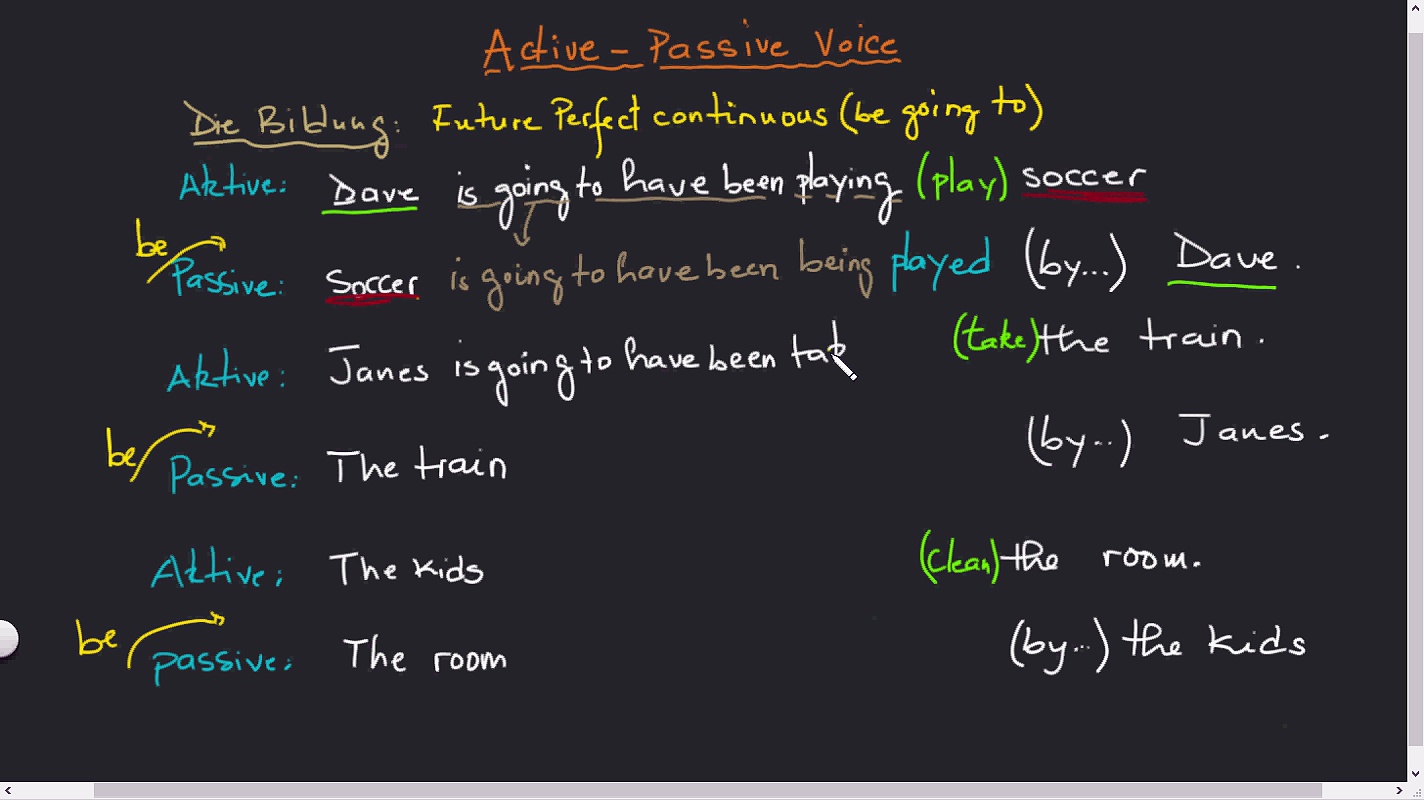 Active - Passive Voice
Die Bildung: Future Perfect continuous (be going to)
Aktive: Dave is going to have been playing (play) soccer
be
Passive: Soccer is going to have been being played (by...) Dave.
Aktive: Janes is going to have been tak (take) the train.
be
Passive: The train (by...) Janes.
Aktive: The kids (clean) the room.
be
passive: The room (by...) the kids